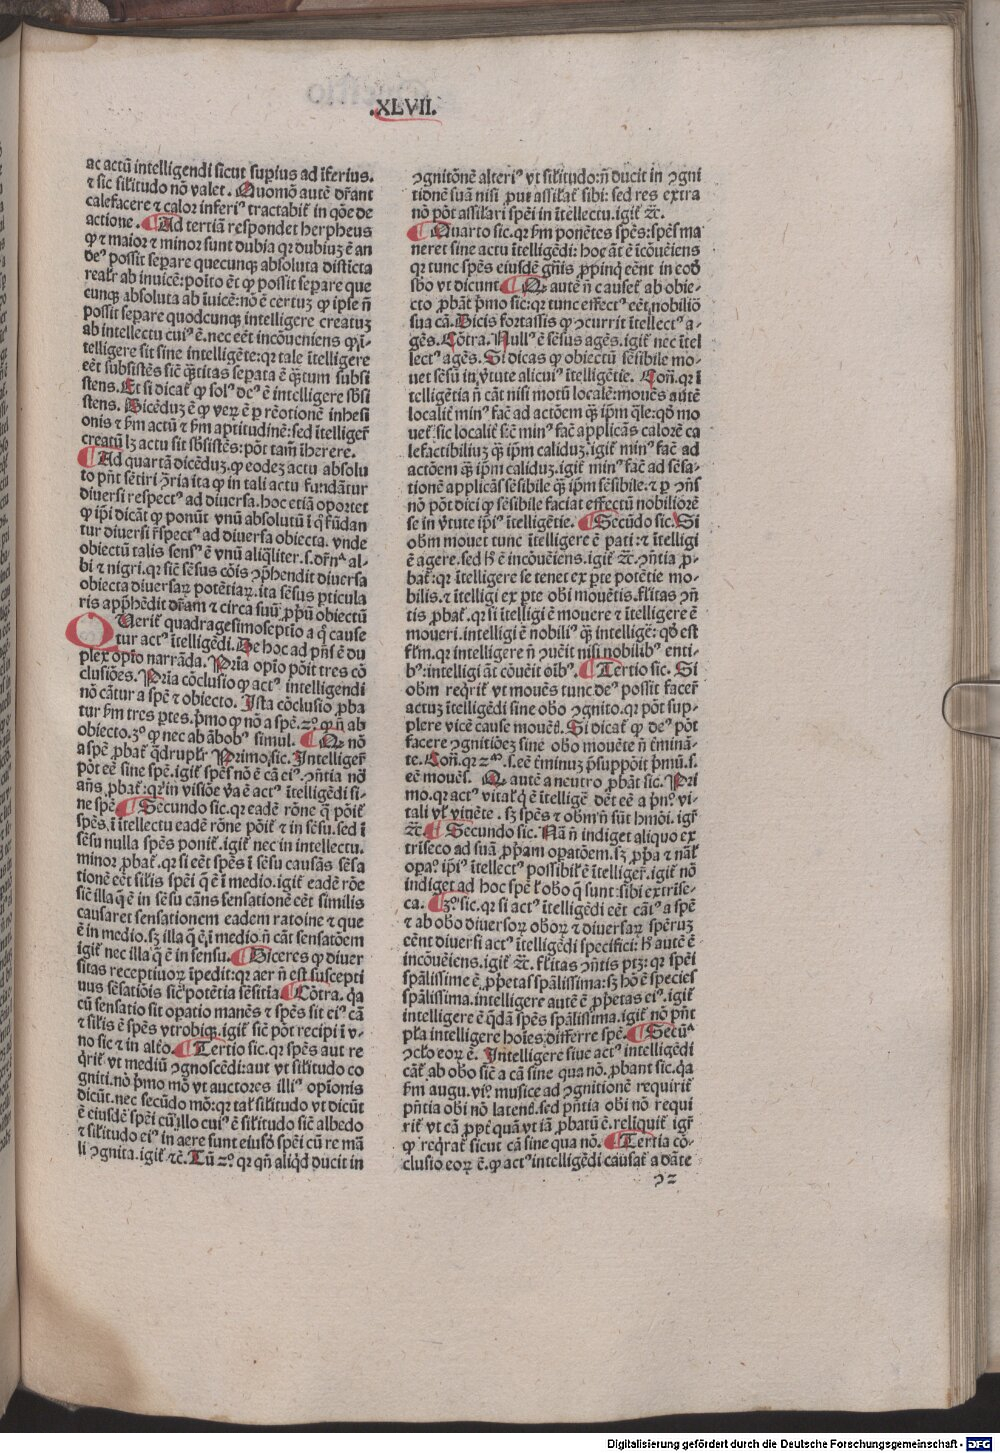 .XLVII.
ac actū intelligendi sicut supius ad īferius.
⁊ sic silitudo nō valet. Quomō autē dr̄ant
calefacere ⁊ calor inferiꝰ tractabit̄ in qōe de
actione. Ad tertiā respondet herpheus
ꝙ ⁊ maior ⁊ minor sunt dubia qꝛ dubiuꝫ ē an
deꝰ possit separe quecunqꝫ absoluta distīcta
realr̄ ab inuicē: poīto ēt ꝙ possit separe que
cunqꝫ absoluta ab īuicē: nō ē certuꝫ ꝙ ipse n̄
possit separe quodcunqꝫ intelligere creatuꝫ
ab intellectu cuiꝰ ē. nec eēt incōueniens ꝙ ī-
telligere sit sine intelligēte: qꝛ tale ītelligere
eēt subsistēs sic̄ q̄titas sepata ē q̄tum subsi
stens. Et si dicat̄ ꝙ solꝰ deꝰ ē intelligere sb̄si
stens. Dicēduꝫ ē ꝙ veꝝ ē ꝑ rēotionē inhesi
onis ⁊ ẜm actū ⁊ ẜm aptitudinē: sed ītelliger̄
creatū lꝫ actu sit sb̄sistēs: pōt tam̄ īherere.
Ad quartā dicēduꝫ. ꝙ eodeꝫ actu absolu
to pn̄t sētiri ɔ̄ria ita ꝙ in tali actu fundātur
diuersi respectꝰ ad diuersa. hoc etiā oportet
ꝙ ip̄i dicāt ꝙ ponūt vnū absolutū ī q̄ fūdan
tur diuersi r̄spectꝰ ad diuersa obiecta. vnde
obiectū talis sensꝰ ē vnū aliq̄liter .s. dr̄nᵃ al-
bi ⁊ nigri. qꝛ sic̄ sēsus cōis ꝯp̄hendit diuersa
obiecta diuersaꝝ potētiaꝝ. ita sēsus ꝑticula
ris appr̄hēdit dr̄am ⁊ circa suū ꝓpriū obiectū
QUerit̄ quadragesimoseptīo a q̄ cause
tur actꝰ ītelligēdi. De hoc ad pn̄s ē du
plex opīo narrāda. Prīa opīo pōit tres cō
clusiōes. Prīa cōclusio ꝙ actꝰ intelligendi
nō cātur a spē ⁊ obiecto. Ista cōclusio ꝓba
tur ẜm tres ꝑtes. pͥmo ꝙ nō a spē. 2º. ꝙ n̄ ab
obiecto. 3º ꝙ nec ab ābobꝰ simul. Qꝛ nō
a spē ꝓbat̄ q̄drupl̄r. Primo, sic. Intelliger̄
pōt eē sine spē. igit̄ spēs nō ē cā eiꝰ. ꝯn̄tia nō
an̄s ꝓbat̄: qꝛ in visiōe v̄a ē actꝰ ītelligēdi si-
ne spē Secundo sic. qꝛ eadē rōne q̄ pōit̄
spēs, ī ītellectu eadē rōne pōit̄ ⁊ in sēsu. sed ī
sēsu nulla spēs ponit̄. igit̄ nec in intellectu.
minor ꝓbat̄. qꝛ si eēt spēs ī sēsu causās sēsa
tionē eēt silis spēi q̄ ē ī medio. igit̄ eadē rōe
sic̄ illa q̄ ē in sēsu cāns sensationē eēt similis
causaret sensationem eadem ratoine ⁊ que
ē in medio. sꝫ illa q̄ ē ī medio n̄ cāt sensatōem
igit̄ nec illa q̄ ē in sensu. Diceres ꝙ diuer
sitas receptiuoꝝ īpedit: qꝛ aer n̄ est suscepti
uus sēsatiōis sic̄ potētia sēsitīa. Cōtra. q̄a
cū sensatio sit opatio manēs ⁊ spēs sit eiꝰ cā
⁊ silis ē spēs vtrobiqꝫ. igit̄ sic̄ pōt recipi ī v-
no sic ⁊ in alt̄o. Tertio sic. qꝛ spēs aut re
q̄rit̄ vt mediū ꝯgnoscēdi: aut vt silitudo co
gniti. nō pͥmo mō vt auctores illiꝰ opīonis
dicūt. nec secūdo mō: qꝛ tal̄ silitudo vt dicūt
ē eiusdē spēi cū illo cuiꝰ ē silitudo sic̄ albedo
⁊ silitudo eiꝰ in aere sunt eiusdē spēi cū re mā
li ꝯgnita. igit̄ ⁊c̄. Tū 2º. qꝛ qn̄ aliq̄d ducit in
ꝯgnitōnē alteriꝰ vt silitudo: n̄ ducit in ꝯgni
tionē suā nisi ꝓut assilat̄ sibi: sed res extra
nō pōt assilari spēi in ītellectu. igit̄ ⁊c̄.
Quarto sic. qꝛ ẜm ponētes spēs: spēs ma
neret sine actu ītelligēdi: hoc āt ē īcōueniens
qꝛ tunc spēs eiusdē gn̄is ꝓpinq̄ eēnt in eodē
sb̄o vt dicunt. Qꝛ autē n̄ causet̄ ab obie-
cto ꝓbāt pͥmo sic: qꝛ tunc effectꝰ eēt nobiliō
sua cā. Dicis fortassis ꝙ ꝯcurrit ītellectꝰ a-
gēs. Cōtra. Nullꝰ ē sēsus agēs. igit̄ nec ītel
lectꝰ agēs. Si dicas ꝙ obiectū sēsibile mo-
uet sēsū in v̄tute alicuiꝰ ītelligētie. Con̄. qꝛ ī
telligētia n̄ cāt nisi motū localē: mouēs autē
localit̄ minꝰ fac̄ ad actōem q̄ ip̄m q̄le: qd̄ mo
uet̄. sic localit̄ s̄c̄ minꝰ fac̄ applicās calorē ca
lefactibiliuꝫ q̄ ip̄m caliduꝫ. igit̄ minꝰ fac̄ ad
actōem q̄ ip̄m caliduꝫ. igit̄ minꝰ fac̄ ad sēsa-
tionē applicās sēsibile q̄ ip̄m sēsibile: ⁊ ꝑ ꝯn̄s
nō pōt dici ꝙ sēsibile faciat effectū nobiliorē
se in v̄tute ip̄iꝰ ītelligētie. Secūdo sic. Si
obm̄ mouet tunc ītelligere ē pati: ⁊ ītelligi
ē agere. sed h̄ ē incōueniens. igit̄ ⁊c̄. ꝯn̄tia ꝓ-
bat̄: qꝛ ītelligere se tenet ex ꝑte potētie mo-
bilis. ⁊ ītelligi ex ꝑte obi mouētis. fl̄itas ꝯn̄
tis ꝓbat̄. qꝛ si ītelligi ē mouere ⁊ ītelligere ē
moueri. intelligi ē nobiliꝰ q̄ intelligēr̄: qd̄ est
fl̄m. qꝛ intelligere n̄ ꝯuēit nisi nobilibꝰ enti-
bꝰ: intelligi āt cōuēit oībꝰ. Tertio sic. Si
obm̄ reqͥrit̄ vt mouēs tunc deꝰ possit facer̄
actuꝫ ītelligēdi sine obo ꝯgnito. qꝛ pōt sup-
plere vicē cause mouētꝭ. Si dicat̄ ꝙ deꝰ pōt
facere ꝯgnitiōeꝫ sine obo mouēte n̄ t̄minā-
te. Con̄. qꝛ 2ᵐ .s. eē t̄minuꝫ p̄suppōit pͥmū .s.
eē mouēs. Qꝛ autē a neutro ꝓbāt sic. Pri
mo. qꝛ actꝰ vitalꝭ q̄ ē ītelliger̄ dēt eē a pͥnꝰ vi-
tali vl̄ viuēte. sꝫ spēs ⁊ obm̄ n̄ sūt hmōi. igr̄
⁊c̄. Secundo sic. Nā n̄ indiget aliquo ex
trīseco ad suā ꝓpriam opatōem. sꝫ ꝓpria ⁊ nāl̄
opaº. ip̄iꝰ ītellectꝰ possibil̄ ē ītelliger̄. igit̄ nō
indiget ad hoc spē l̄ obo q̄ sunt sibi extrīse-
ca. 3º. sic. qꝛ si actꝰ ītelligēdi eēt cātꝰ a spē
⁊ ab obo diuersoꝝ oboꝝ ⁊ diuersaꝝ spēruꝫ
eēnt diuersi actꝰ ītelligēdi specifici: h̄ autē ē
incōueniens. igit̄ ⁊c̄. fl̄itas ꝯn̄tis ptꝫ: qꝛ spēi
spālissime ē ꝓprietas spālissima: sꝫ hō ē species
spālissima. intelligere autē ē ꝓprietas eiꝰ. igit̄
intelligere ē q̄dā spēs spālissima. igit̄ nō pn̄t
pl̄a intelligere hoīes differre spē. Secūᵃ
ꝯclo eoꝝ ē. Intelligere siue actꝰ ītelligēdi
cāt̄ ab obo sic̄ a cā sine qua nō. ꝓbant sic. q̄a
ẜm augu. viº. musice ad ꝯgnitionē requirit̄
pn̄tia obi nō latens. sed pn̄tia obi nō requi
rit̄ vt cā ꝓpt̄ quā vt iā ꝓbatū ē. reliquit̄ igr̄
ꝙ reqͥrat̄ sicut cā sine qua nō. Tertia cō-
clusio eoꝝ ē. ꝙ actꝰ intelligēdi causat̄ a dāte
ꝯ2
Digitalisierung gefördert durch die Deutsche Forschungsgemeinschaft - DFG